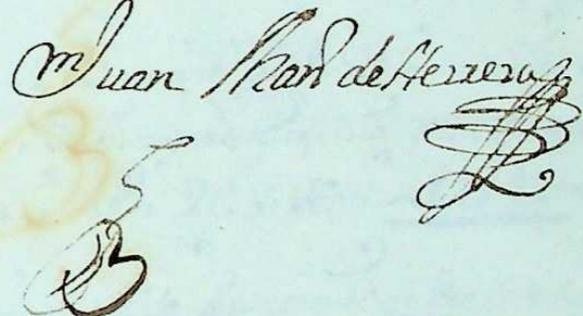 Juan Man^l de Herrera